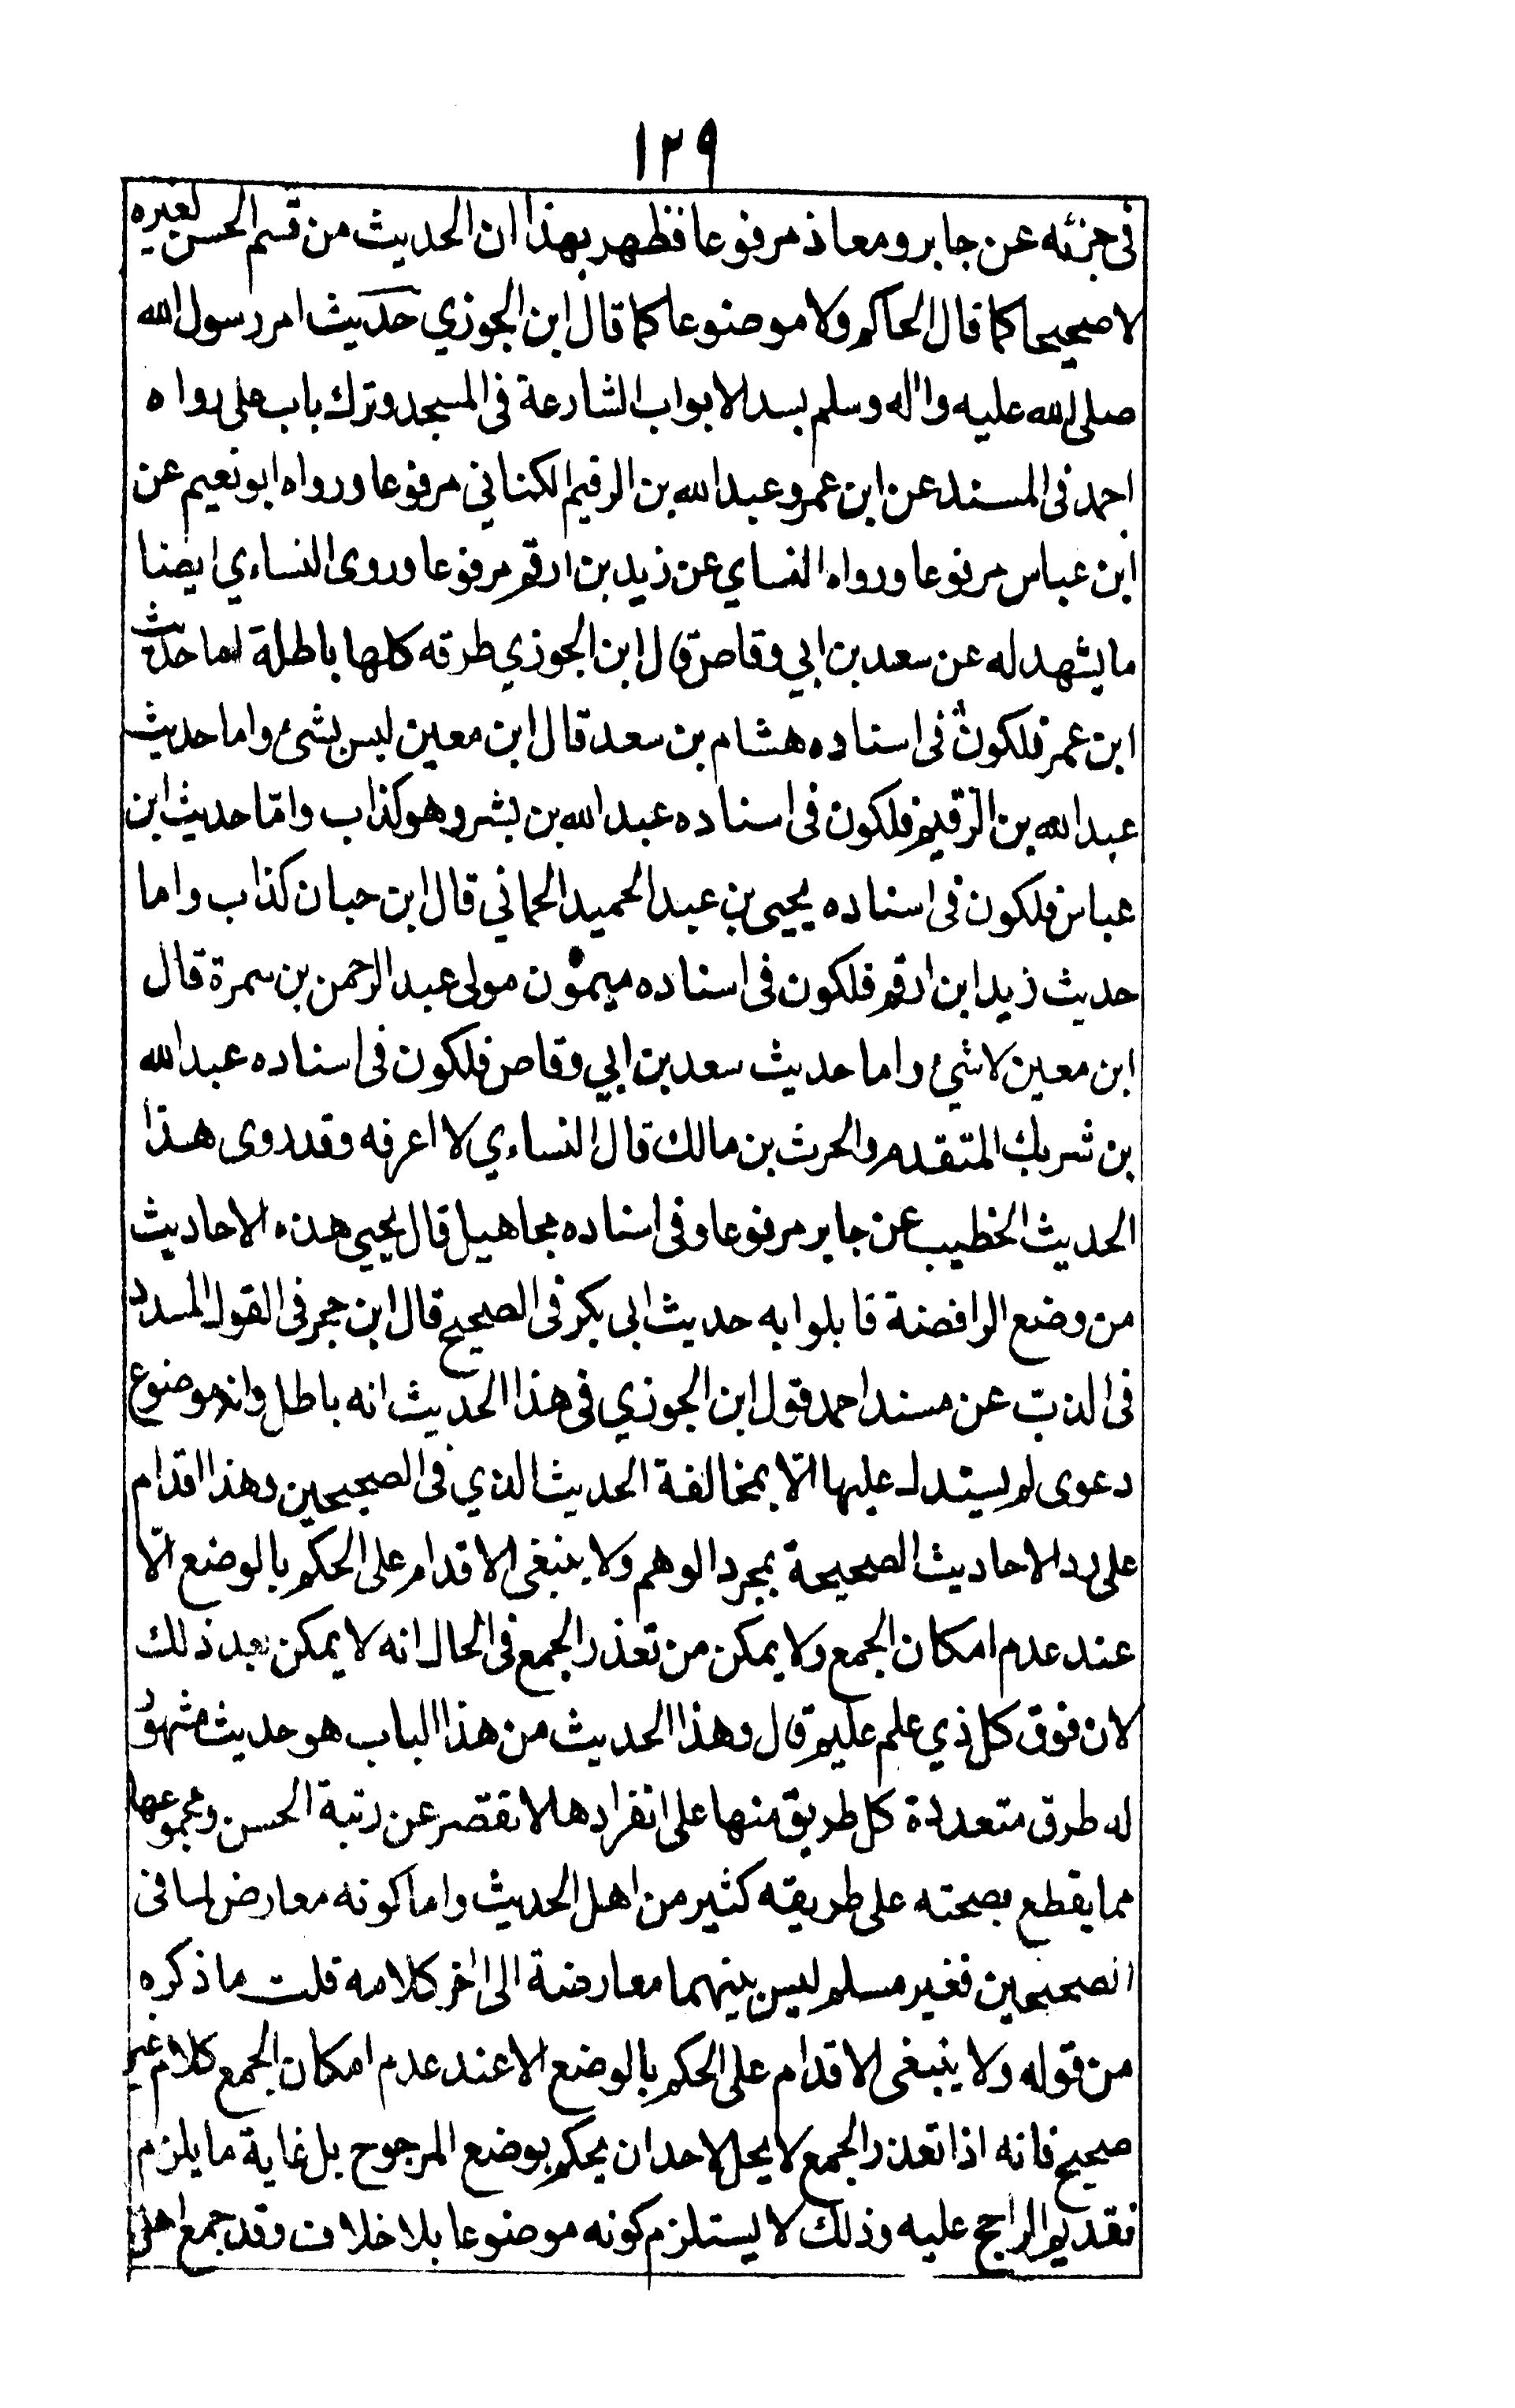 ١٢٩
فى جزئه عن جابر ومعاذ مرفوعا فظهر بهذا ان الحديث من قسم الحسن لغيره
لا صحيحا كما قال الحاكم ولا موضوعا كما قال ابن الجوزي حديث امر رسول الله
صلى الله عليه واله وسلم بسد الابواب الشارعة فى المسجد وترك باب على رواه
احمد فى المسند عن ابن عمر وعبد الله بن الرقيم الكناني مرفوعا ورواه ابو نعيم عن
ابن عباس مرفوعا ورواه النساي عن زيد بن ارقم مرفوعا وروى النساءي ايضا
ما يشهد له عن سعد بن ابي وقاص قال ابن الجوزي طرقه كلها باطلة اما حديث
ابن عمر فلكون فى اسناده هشام بن سعد قال ابن معين ليس بشئ واما حديث
عبد الله بن الرقيم فلكون فى اسناده عبد الله بن بشر وهو كذاب وامّا حديث ابن
عباس فلكون فى اسناده يحيى بن عبد الحميد الحماني قال ابن حبان كذاب واما
حديث زيد ابن ارقم فلكون فى اسناده ميمون مولى عبد الرحمن بن سمرة قال
ابن معين لا شئ واما حديث سعد بن ابي وقاص فلكون فى اسناده عبد الله
بن شريك المتقدم والحرث بن مالك قال النساءي لا اعرفه وقد روى هذا
الحديث الخطيب عن جابر مرفوعا وفى اسناده مجاهيل قال يحيى هذه الاحاديث
من وضع الرافضة قابلوا به حديث ابى بكر فى الصحيح قال ابن حجر فى القول المسدد
فى الذبّ عن مسند احمد قول ابن الجوزي فى هذا الحديث انه باطل وانه موضوع
دعوى لم يستدل عليها الّا بمخالفة الحديث الذي فى الصحيحين وهذا اقدام
على رد الاحاديث الصحيحة بمجرد الوهم ولا ينبغى الاقدام على الحكم بالوضع الّا
عند عدم امكان الجمع ولا يمكن من تعذر الجمع فى الحال انه لا يمكن بعد ذلك
لان فوق كل ذي علم عليم قال وهذا الحديث من هذا الباب هو حديث مشهور
له طرق متعددة كل طريق منها على انفرادها لا تقصر عن رتبة الحسن ومجموعها
مما يقطع بصحته على طريقة كثير من اهل الحديث واما كونه معارض لما فى
الصحيحين فغير مسلم ليس بينهما معارضة الى اخر كلامه قلت ما ذكره
من قوله ولا ينبغى الاقدام على الحكم بالوضع الا عند عدم امكان الجمع كلام غير
صحيح فانه اذا تعذر الجمع لا يحل لاحد ان يحكم بوضع المرجوح بل غاية ما يلزم
تقديم الراجح عليه وذلك لا يستلزم كونه موضوعا بلا خلاف وقد جمع اهل